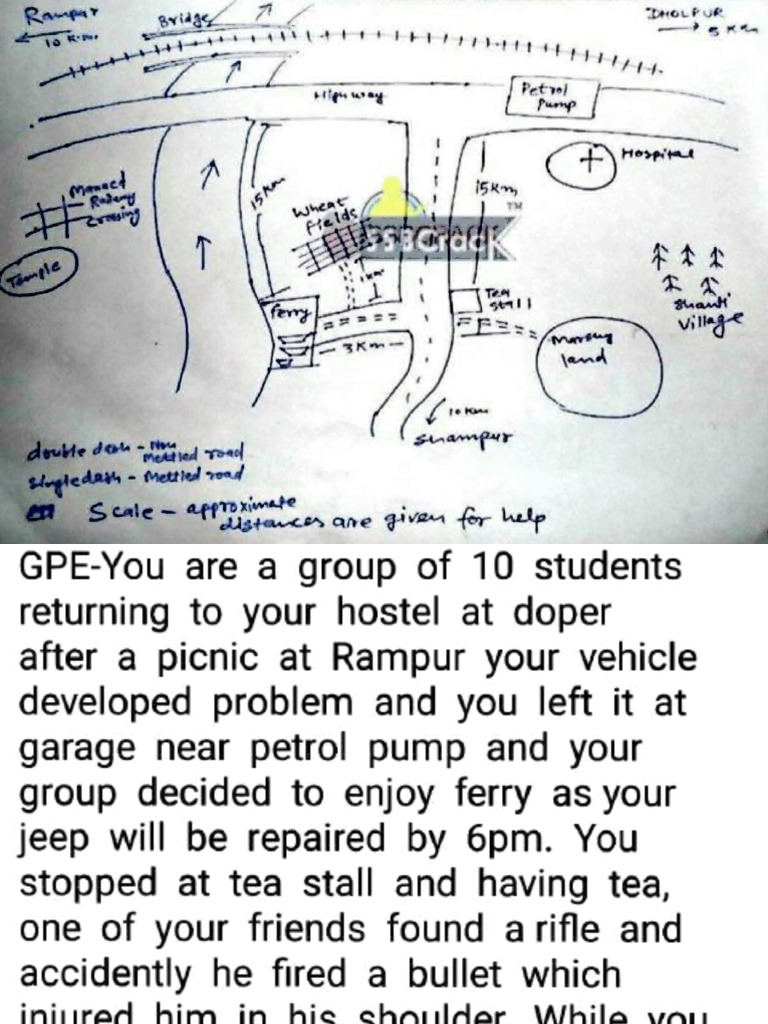 Rampur
10 K.m.
Bridge
DHOLPUR
5 Km
Highway
Petrol
Pump
Hospital
Manned
Railway
Crossing
Temple
15Km
Wheat
Fields
SSBCrack™
15Km
1Km
Ferry
Tea
Stall
3Km
Marshy
land
Shanti
Village
10 Km
Shampur
double dash - Non
Mettled road
Single dash - Mettled road
Scale - approximate
distances are given for help
GPE-You are a group of 10 students
returning to your hostel at doper
after a picnic at Rampur your vehicle
developed problem and you left it at
garage near petrol pump and your
group decided to enjoy ferry as your
jeep will be repaired by 6pm. You
stopped at tea stall and having tea,
one of your friends found a rifle and
accidently he fired a bullet which
injured him in his shoulder. While you